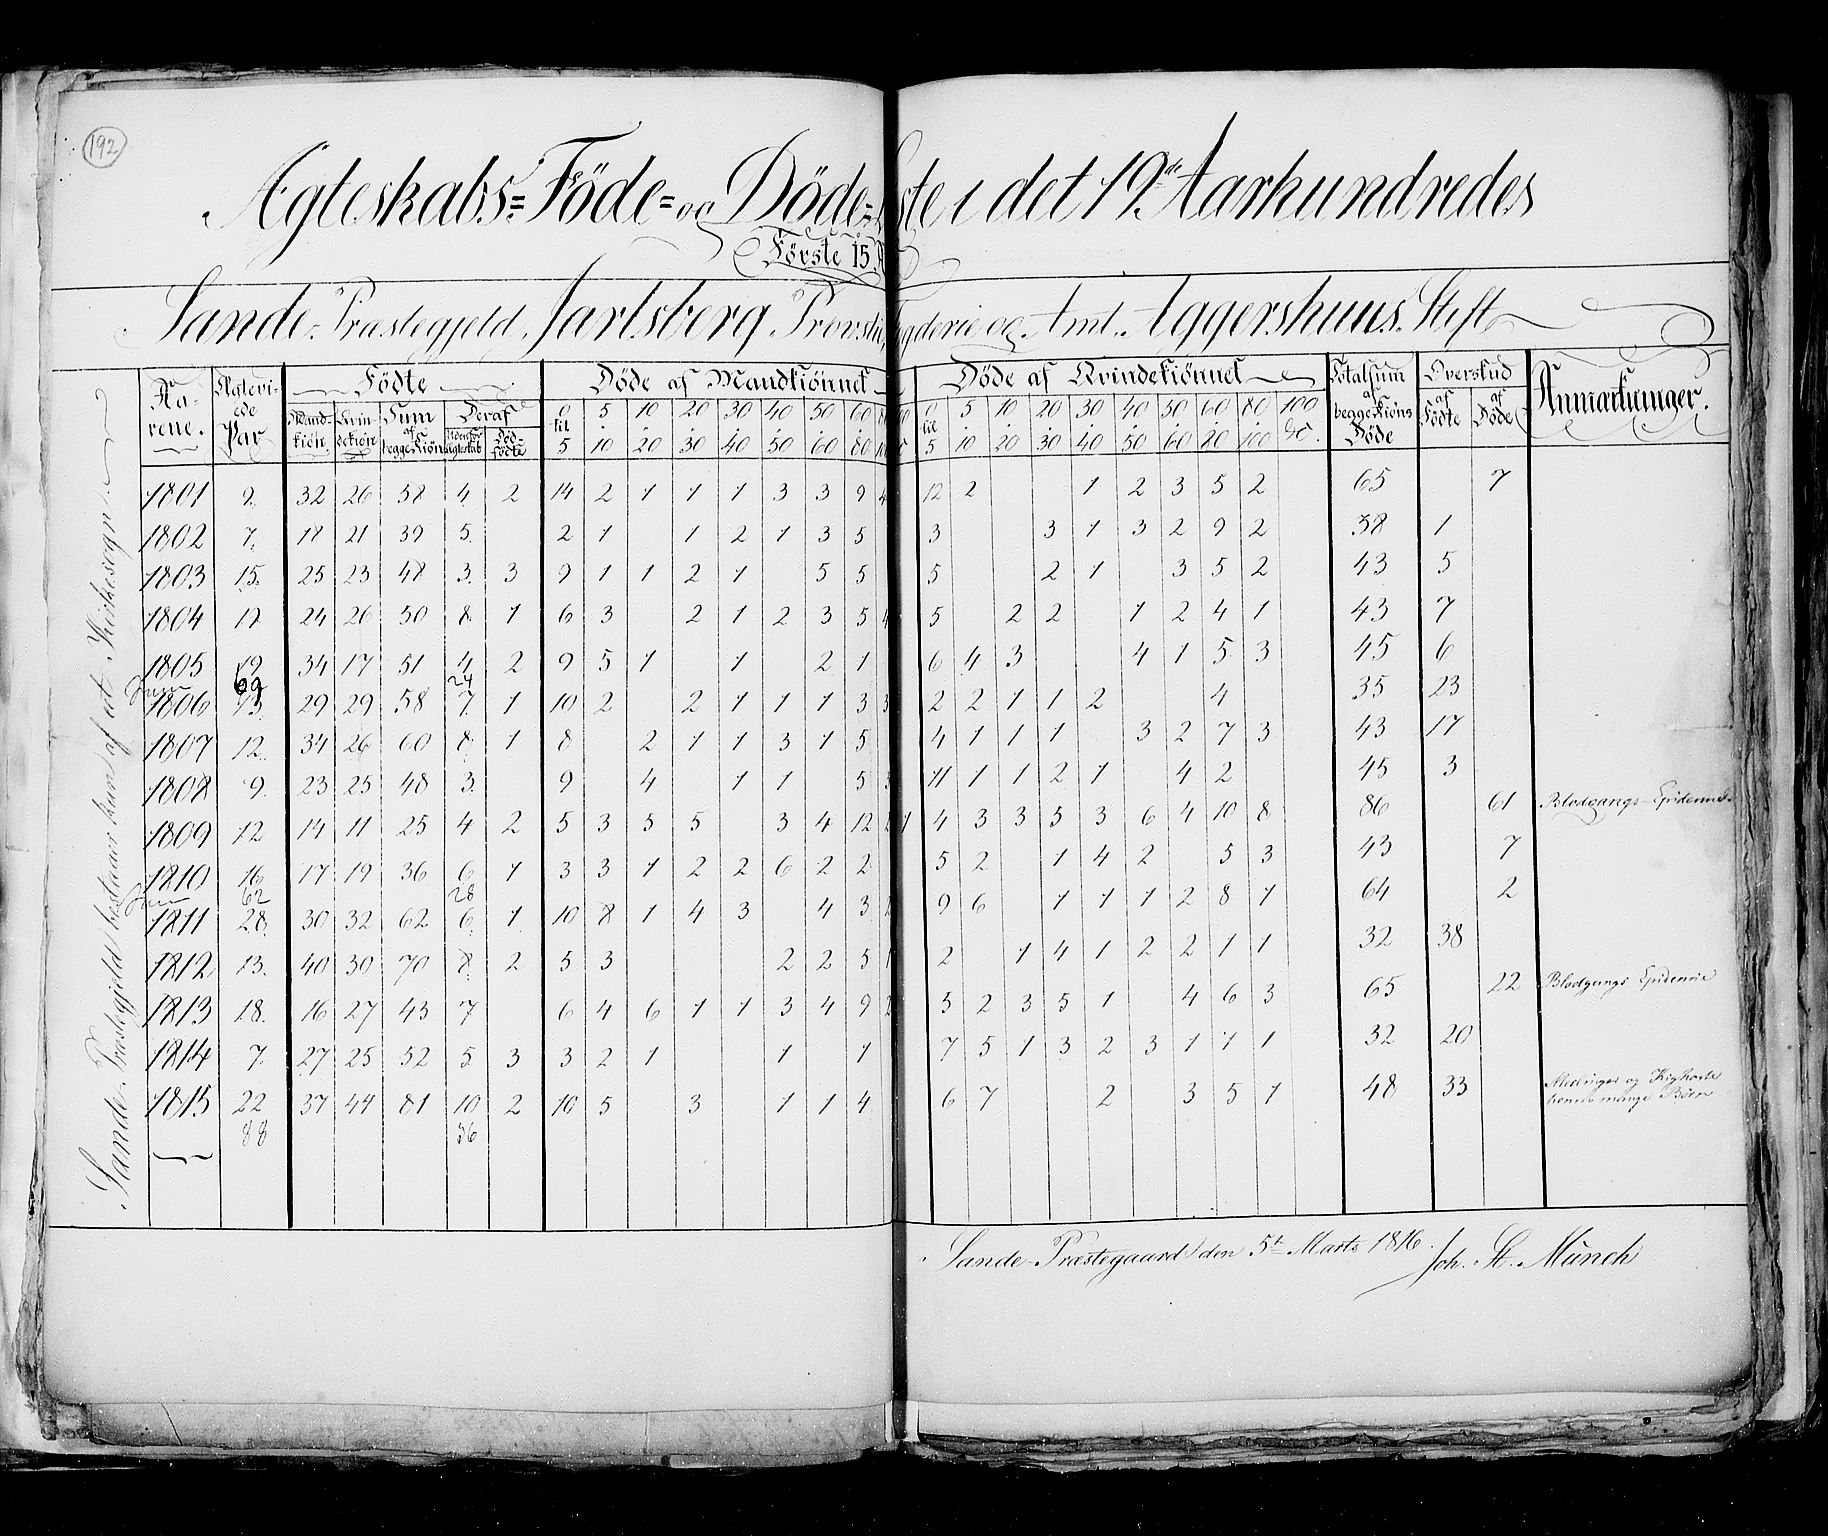 192
Ægteskabs= Föde= og Döde=Liste i det 19de Aarhundredes
Förste 15. A
Sande Præstegjeld, Jarlsberg Provstie, Fogderie og Amt. Aggershuus Stift
Sande Præstegjeld bestaar kun af et Kirkesogn.
Aarene. | Ægtevi-ede Par | Födte | Döde af Mandkiönnet | Döde af Kvindekiönnet | Totalsum af begge Kiöns Döde | Overskud | Anmærkninger.
Mandkiön. | Kvindekiön | Sum af begge Kiön | Deraf | af Födte | af Döde
Udenfor Ægteskab | Dödfödte
0 til 5 | 5 10 | 10 20 | 20 30 | 30 40 | 40 50 | 50 60 | 60 80 | 0 til 5 | 5 10 | 10 20 | 20 30 | 30 40 | 40 50 | 50 60 | 60 80 | 80 100 | 100
1801 9. 32 26 58 4. 2 14 2 1 1 1 3 3 9 4 12 2 1 2 3 5 2 65 7
1802 7. 18 21 39 5. 2 1 1 2 1 3 5 3 3 1 3 2 9 2 38 1
1803 15. 25 23 48 3. 3 9 1 1 2 1 5 5 5 2 1 3 5 2 43 5
1804 12 24 26 50 8. 1 6 3 2 1 2 3 5 4 5 2 2 1 2 4 1 43 7
1805 19 34 17 51 4 2 9 5 1 1 2 1 6 4 3 4 1 5 3 45 6
Sum 62 24
1806 13. 29 29 58 7. 1 10 2 2 1 1 1 3 3 2 2 1 1 2 4 35 23
1807 12. 34 26 60 8. 1 8 2 1 1 3 1 5 4 1 1 1 3 2 7 3 43 17
1808 9. 23 25 48 3. 9 4 1 1 5 3 11 1 1 2 1 4 2 45 3
1809 12 14 11 25 4 2 5 3 5 5 3 4 12 2 1 4 3 3 5 3 6 4 10 8 86 61 Blodgangs-Epidemie
1810 16 17 19 36 6 1 3 3 1 2 2 6 2 2 5 2 1 4 2 5 3 43 7
Sum 62 28
1811 28. 30 32 62 6. 1 10 8 1 4 3 4 3 2 9 6 1 1 1 2 8 1 64 2
1812 13. 40 30 70 8. 2 5 3 2 2 5 1 2 1 4 1 2 2 1 1 32 38
1813 18. 16 27 43 7 6 4 6 1 1 3 4 9 2 5 2 3 5 1 4 6 3 65 22 Blodgangs Epidemie
1814 7. 27 25 52 5. 3 3 2 1 1 1 7 5 1 3 2 3 1 1 1 32 20
1815 22 37 44 81 10 2 10 5 3 1 1 4 6 7 2 3 5 1 48 33 Meslinger og Kighoste
mange Börn
88 56
Sande Præstegaard den 5te Marts 1816. Joh. St. Münch